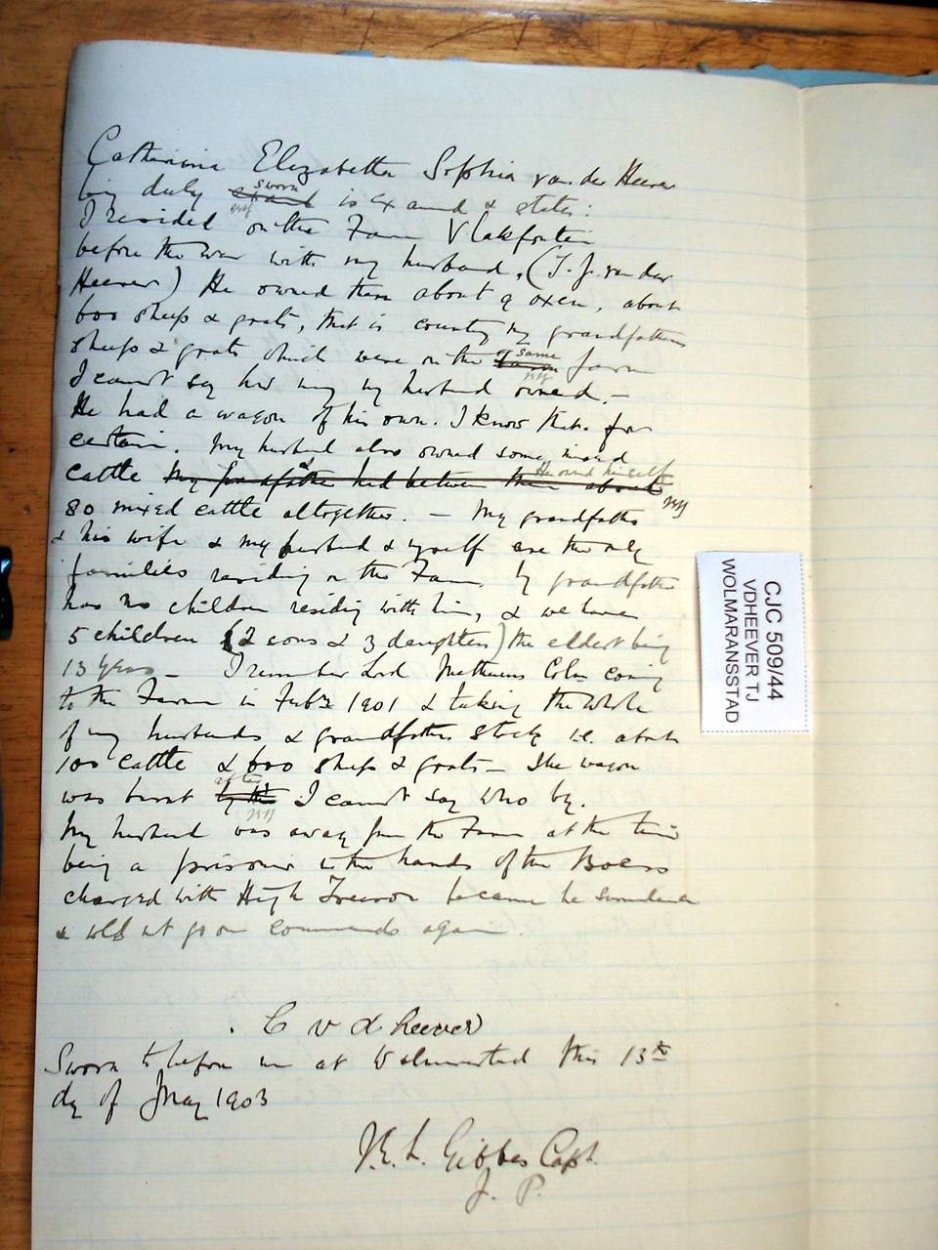 Catharina Elizabetha Sophia van der Heever
being duly sworn is examd & states:
I resided on the Farm Vlakfontein
before the war with my husband, (T. J. van der
Heever) He owned there about 9 oxen, about
600 sheep & goats, that is counting my grandfathers
sheep & goats which were on the same farm
I cannot say how many my husband owned. —
He had a wagon of his own. I know that for
certain. My husband also owned some mixed
cattle My grandfather had between them about He owned himself
80 mixed cattle altogether. — My grandfather
& his wife & my husband & myself are the only
families residing on the Farm. My grandfather
has no children residing with him, & we have
5 children (2 sons & 3 daughters) the eldest being
13 years — I remember Lord Methuens Coln coming
to the Farm in Feby 1901 & taking the whole
of my husbands & grandfathers stock i.e. about
100 cattle & 600 sheep & goats — The wagon
was burnt after I cannot say who by.
My husband was away from the Farm at the time
being a prisoner in the hands of the Boers
charged with High Treason because he surrendered
& wld not go on commando again.
C v d Heever
Sworn to before me at Wolmarstad this 13th
day of May 1903
Gibbes Capt.
J. P.
CJC 509/44
VDHEEVER TJ
WOLMARANSSTAD